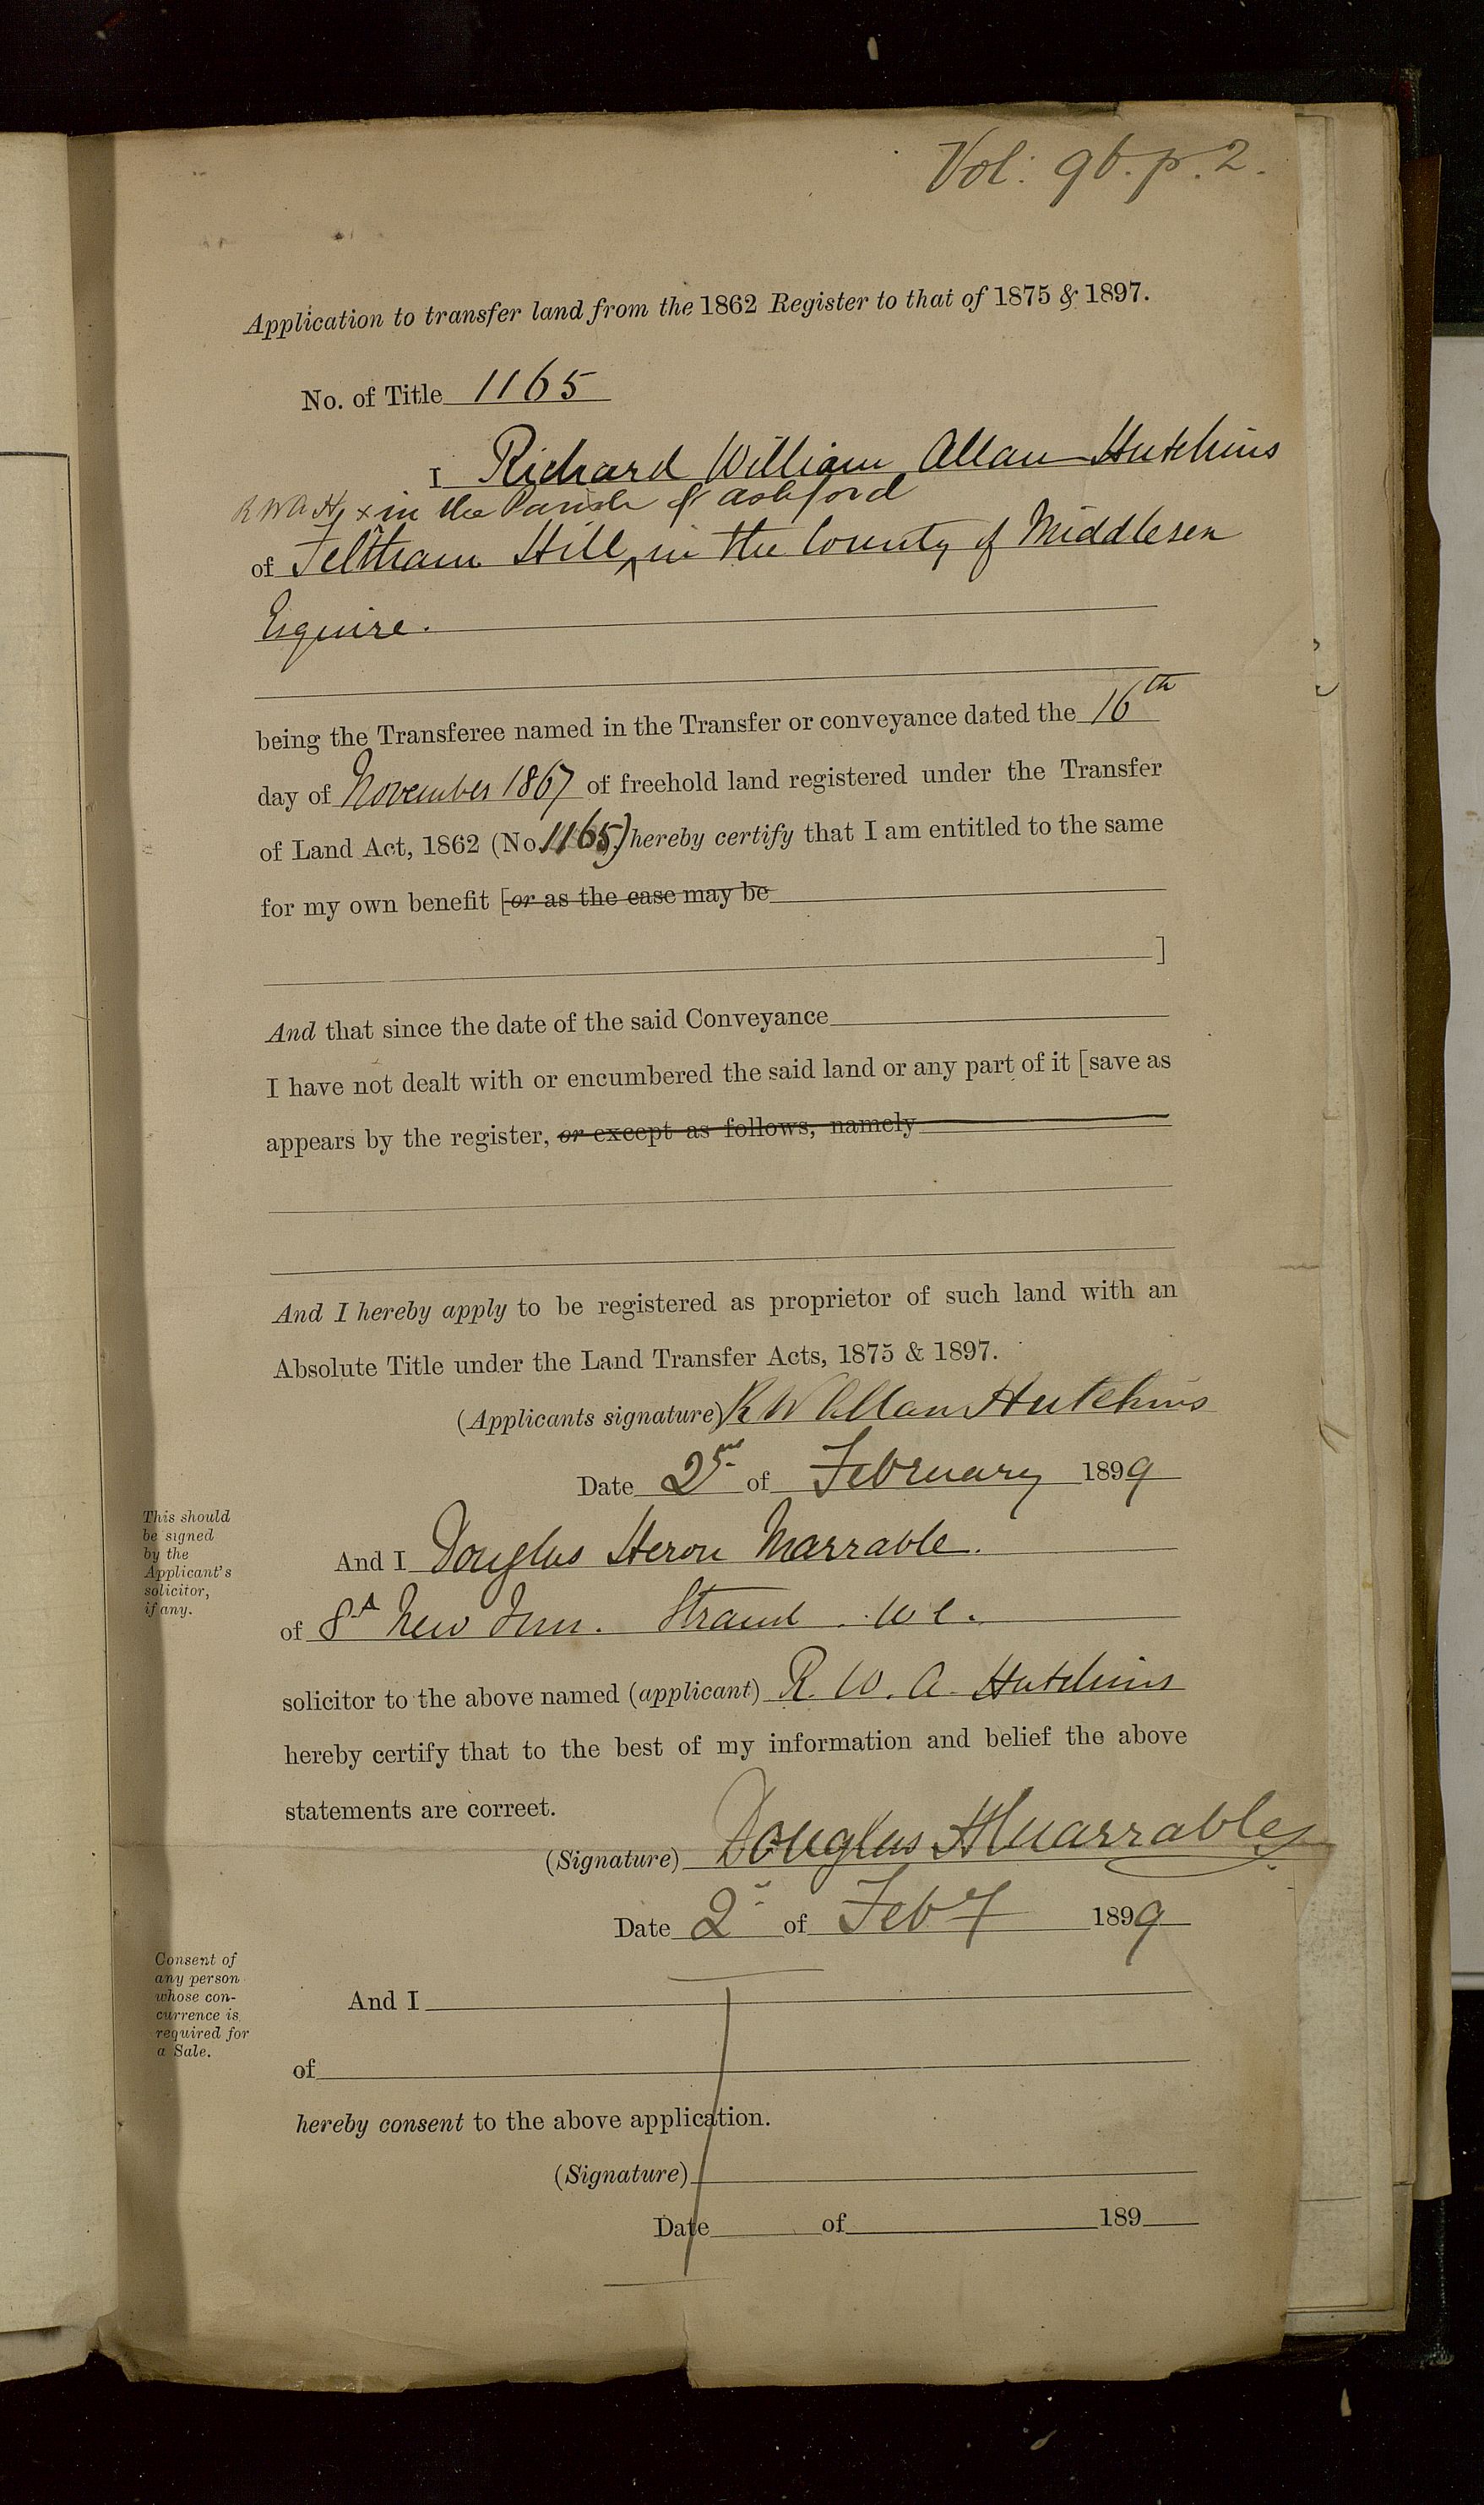 Vol: 96. p. 2.
Application to transfer land from the 1862 Register to that of 1875 & 1897.
No. of Title 1165
I Richard William Allan Hutchins
RWAH x in the Parish of Ashford
of Feltham Hill, in the County of Middlesex
Esquire.
being the Transferee named in the Transfer or conveyance dated the 16th
day of November 1867 of freehold land registered under the Transfer
of Land Act, 1862 (No. 1165) hereby certify that I am entitled to the same
for my own benefit [or as the case may be
]
And that since the date of the said Conveyance
I have not dealt with or encumbered the said land or any part of it [save as
appears by the register, or except as follows, namely
And I hereby apply to be registered as proprietor of such land with an
Absolute Title under the Land Transfer Acts, 1875 & 1897.
(Applicants signature) R W Allan Hutchins
Date 2nd of February 1899
This should
be signed
by the
Applicant's
solicitor,
if any.
And I Douglas Heron Marrable.
of 8A New Inn. Strand. W C.
solicitor to the above named (applicant) R. W. A. Hutchins
hereby certify that to the best of my information and belief the above
statements are correct.
(Signature) Douglas H Marrable
Date 2 of Feby 1899
Consent of
any person
whose con-
currence is
required for
a Sale.
And I
of
hereby consent to the above application.
(Signature)
Date of 189